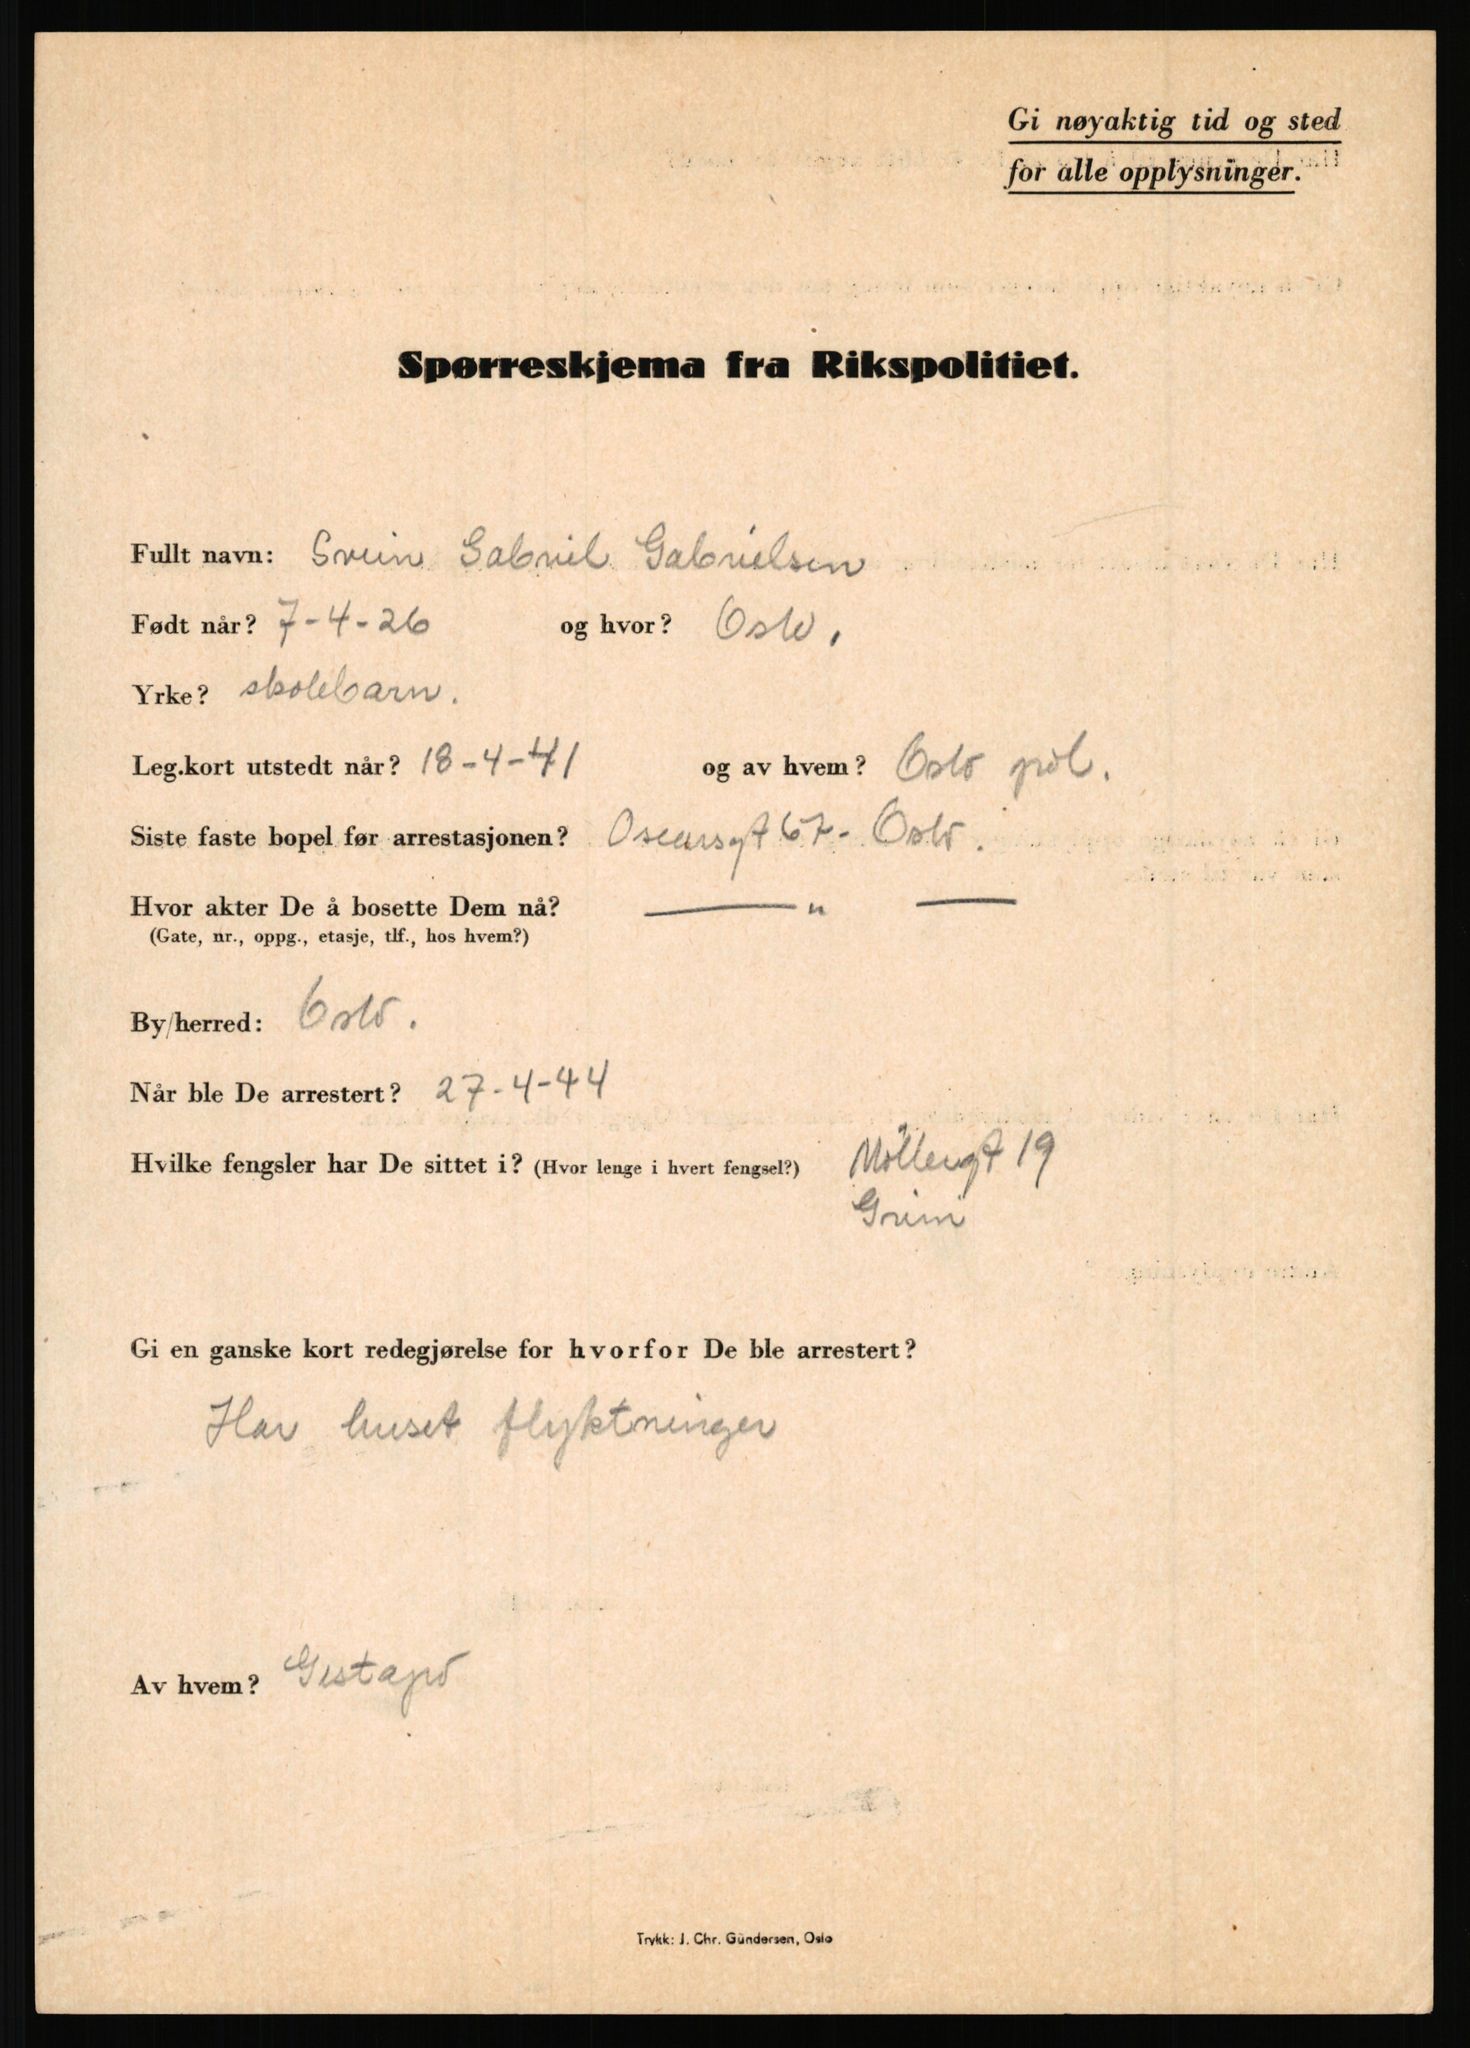 Gi nøyaktig tid og sted
for alle opplysninger.
Spørreskjema fra Rikspolitiet.
Fullt navn: Svein Gabriel Gabrielsen
Født når? 7-4-26 og hvor? Oslo.
Yrke? skolebarn.
Leg.kort utstedt når? 18-4-41 og av hvem? Oslo pol.
Siste faste bopel før arrestasjonen? Oscarsgt 67 - Oslo.
Hvor akter De å bosette Dem nå? — " —
(Gate, nr., oppg., etasje, tlf., hos hvem?)
By/herred: Oslo.
Når ble De arrestert? 27-4-44
Hvilke fengsler har De sittet i? (Hvor lenge i hvert fengsel?) Möllergt 19
Grini
Gi en ganske kort redegjørelse for hvorfor De ble arrestert?
Har huset flyktninger
Av hvem? Gestapo
Trykk: J. Chr. Gundersen, Oslo